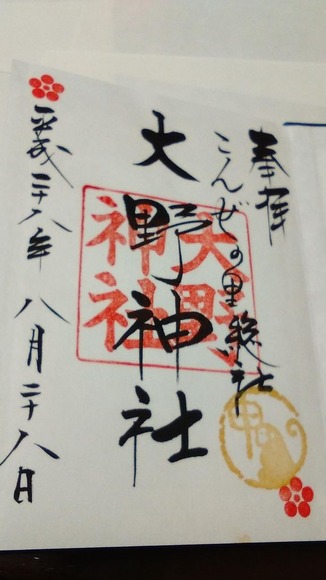 奉拝
こんぜの里総社
大野神社
平成二十八年八月二十八日
大野
神社
申